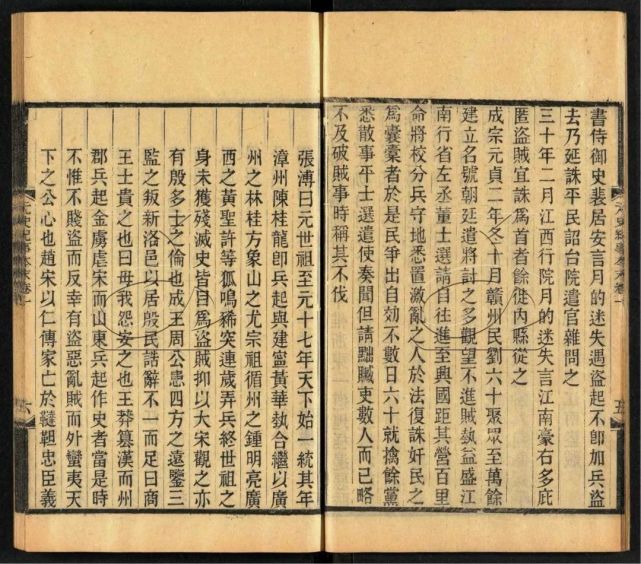 書侍御史裴居安言月的迷失遇盜起不卽加兵盜
去乃延誅平民詔台院遣官雜問之
三十年二月江西行院月的迷失言江南豪右多庇
匿盜賊宜誅爲首者餘徙內縣從之
成宗元貞二年冬十月贛州民劉六十聚眾至萬餘
建立名號朝廷遣將討之多觀望不進賊埶益盛江
南行省左丞董士選請自往進至興國距其營百里
命將校分兵守地悉置激亂之人於法復誅奸民之
爲囊橐者於是民爭出自効不數日六十就擒餘黨
悉散事平士選遣使奏聞但請黜贓吏數人而已略
不及破賊事時稱其不伐
張溥曰元世祖至元十七年天下始一統其年
漳州陳桂龍卽兵起與建寧黃華埶合繼以廣
州之林桂方象山之尤宗祖循州之鍾明亮廣
西之黃聖許等狐鳴豨突連歲弄兵終世祖之
身未獲殘滅史皆目爲盜賊抑以大宋觀之亦
有殷多士之倫也成王周公悳四方之遠鑒三
監之叛新洛邑以居殷民誥辭不一而足曰商
王士貴之也曰毋我怨安之也王莽篡漢而州
郡兵起金虜虐宋而山東兵起作史者當是時
不惟不賤盜而反幸有盜惡亂賊而外蠻夷天
下之公心也趙宋以仁傳家亡於韃靼忠臣義